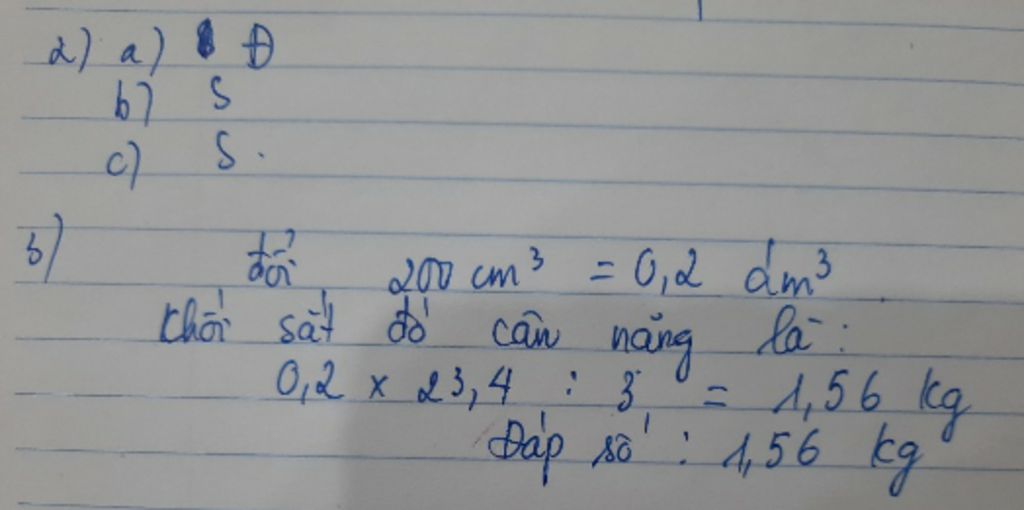 2) a) Đ
b) S
c) S.
3) đổi 200 cm³ = 0,2 dm³
Khối sắt đó cân nặng là:
0,2 x 23,4 : 3 = 1,56 kg
Đáp số : 1,56 kg